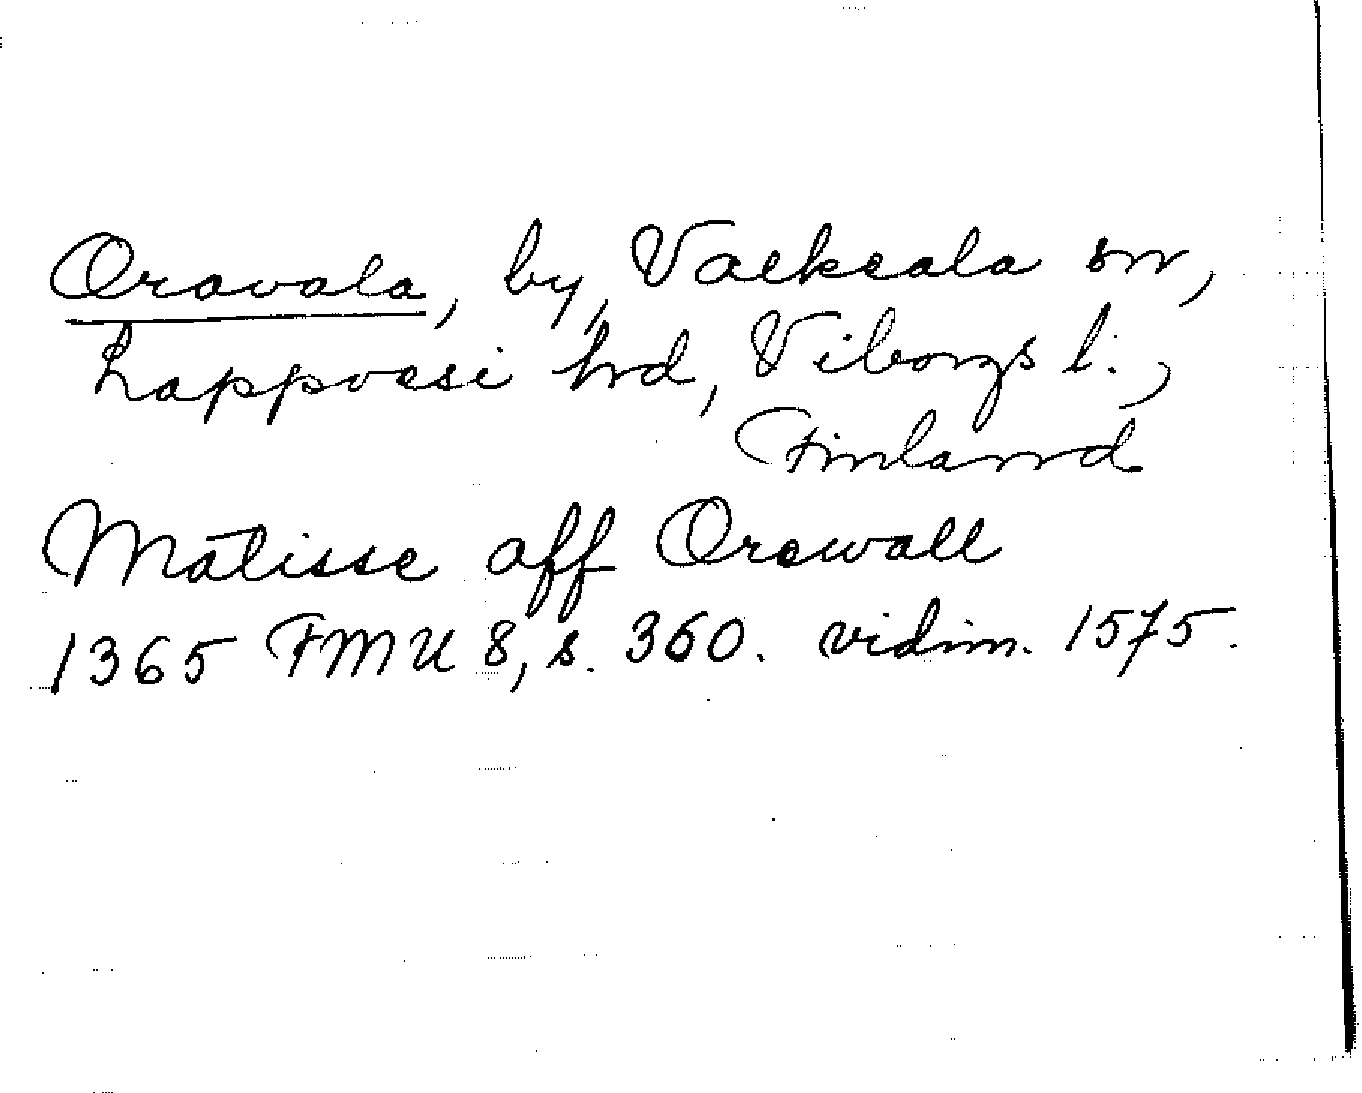 Oravala, by, Valkeala sn,
Lappvesi hrd, Viborgs l.,
Finland
Matisse aff Orewall
1365 FMU 8, s. 360. vidim. 1575.